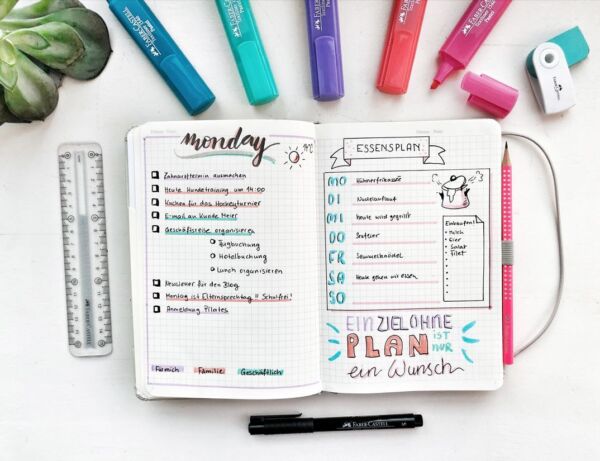 FABER-CASTELL
FABER-CASTELL
FABER-CASTELL
FABER-CASTELL
FABER-CASTELL
Monday
Zahnarzttermin ausmachen
Heute Hundetraining um 14:00
Kuchen für das Hockeyturnier
E-mail an Kunde Meier
Geschäftsreise organisieren
Flugbuchung
Hotelbuchung
Lunch organisieren
Newsletter für den Blog
Montag ist Elternsprechtag !! Schulfrei!
Anmeldung Pilates
Für mich Familie Geschäftlich
ESSENSPLAN
MO Hühnerfrikassee
DI Nudelauflauf
MI heute wird gegrillt
DO
FR Semmelknödel
SA Heute gehen wir essen
SO
Einkaufen!
Milch
Eier
Salat
Filet
EIN ZIEL OHNE
PLAN ist
NUR
ein Wunsch
FABER-CASTELL
FABER-CASTELL